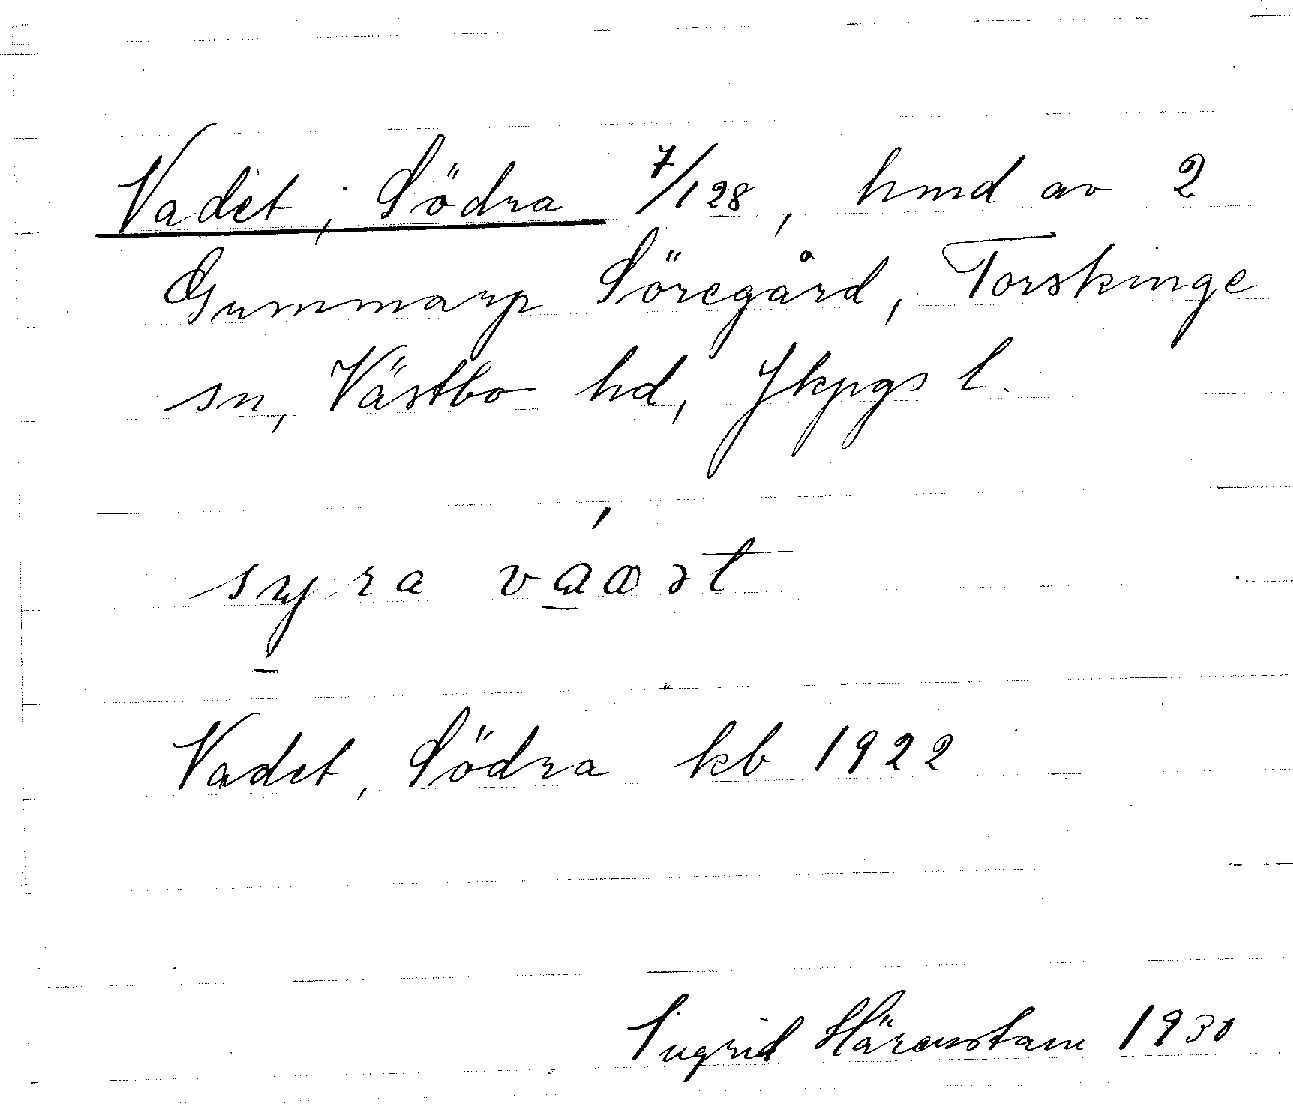 Vadet, Södra 7/128, hmd av 2
Gummarp Söregård, Torskinge
sn, Västbo hd, Jkpgs l.
Vadet, Södra kb 1922
Ingrid Härenstam 1930